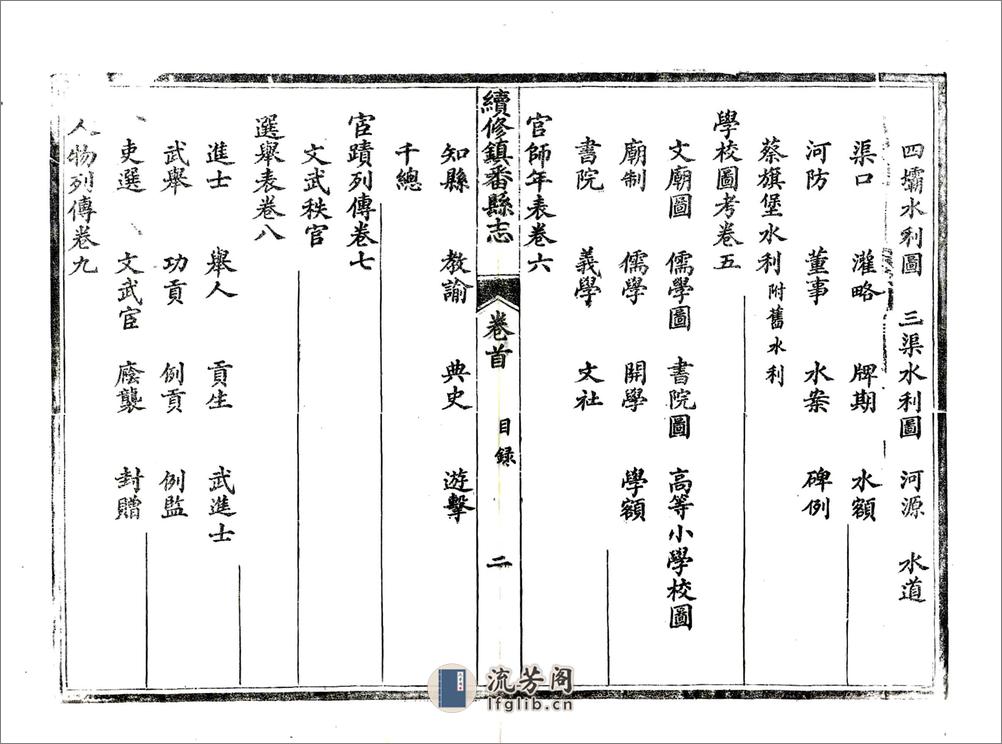 四壩水利圖 三渠水利圖 河源 水道
渠口 灌略 牌期 水額
河防 董事 水案 碑例
蔡旗堡水利附舊水利
學校圖考卷五
文廟圖 儒學圖 書院圖 高等小學校圖
廟制 儒學 開學 學額
書院 義學 文社
官師年表卷六
續修鎮番縣志 卷首 目錄 二
知縣 教諭 典史 遊擊
千總
宦蹟列傳卷七
文武秩官
選舉表卷八
進士 舉人 貢生 武進士
武舉 功貢 例貢 例監
吏選 文武宦 廕襲 封贈
人物列傳卷九
流芳阁
lfglib.cn